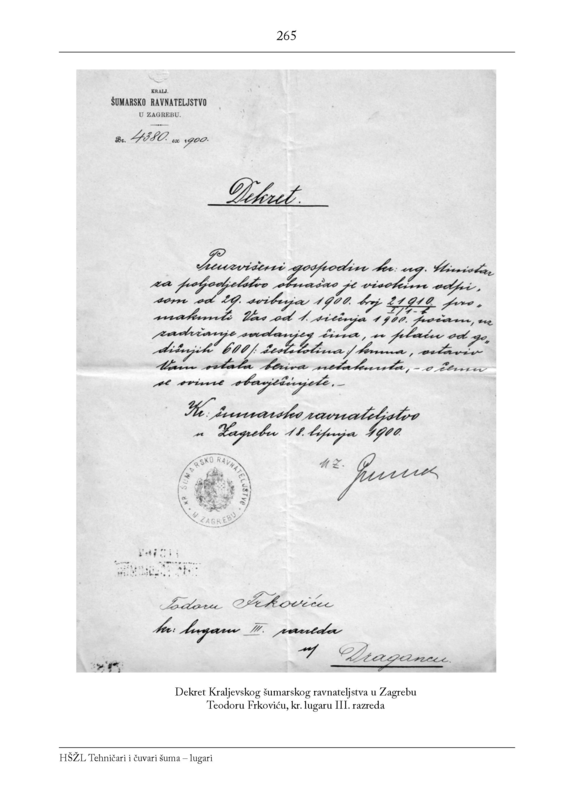 265
KRALJ.
ŠUMARSKO RAVNATELJSTVO
U ZAGREBU.
Br. 4380. ex 1900.
Dekret.
Preuzvišeni gospodin kr. ug. Ministar
za poljodjelstvo obnašao je visokim odpi-
som od 29. svibnja 1900. broj 21910 pro-
maknuti Vas od 1. siečnja 1900. počam, uz
zadržanje sadanjeg čina, u plaću od go-
dišnjih 600/šeststotina/kruna, ostaviv
Vam ostala beriva netaknuta, – o čemu
se ovime obavješćujete. –
Kr. šumarsko ravnateljstvo
u Zagrebu 18. lipnja 1900.
KR. ŠUMARSKO RAVNATELJSTVO
U ZAGREBU
Todoru Frkoviću
kr. lugaru III. razreda
u/ Dragancu.
Dekret Kraljevskog šumarskog ravnateljstva u Zagrebu
Teodoru Frkoviću, kr. lugaru III. razreda
HŠŽL Tehničari i čuvari šuma – lugari